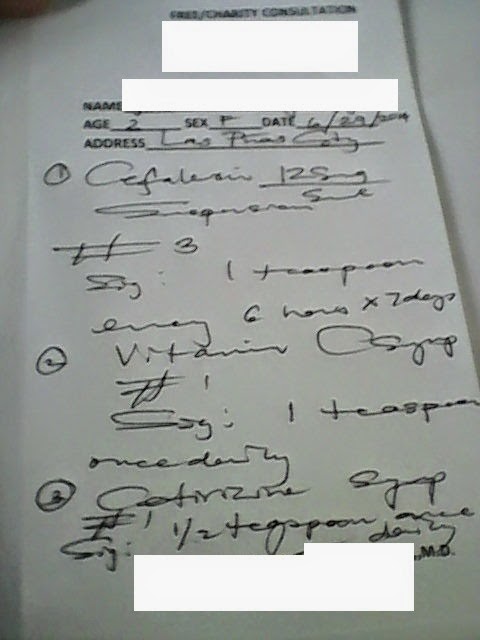 FREE/CHARITY CONSULTATION
NAME
AGE 2 SEX F DATE 6/29/2014
ADDRESS Las Pinas City
① Cefalexin 125mg
5ml
Suspension
# 3
Sig: 1 teaspoon
every 6 hours x 7 days
② Vitamin C Syrup
# 1
Sig: 1 teaspoon
once daily
③ Cetirizine Syrup
# 1
Sig: 1/2 teaspoon once
daily
, M.D.